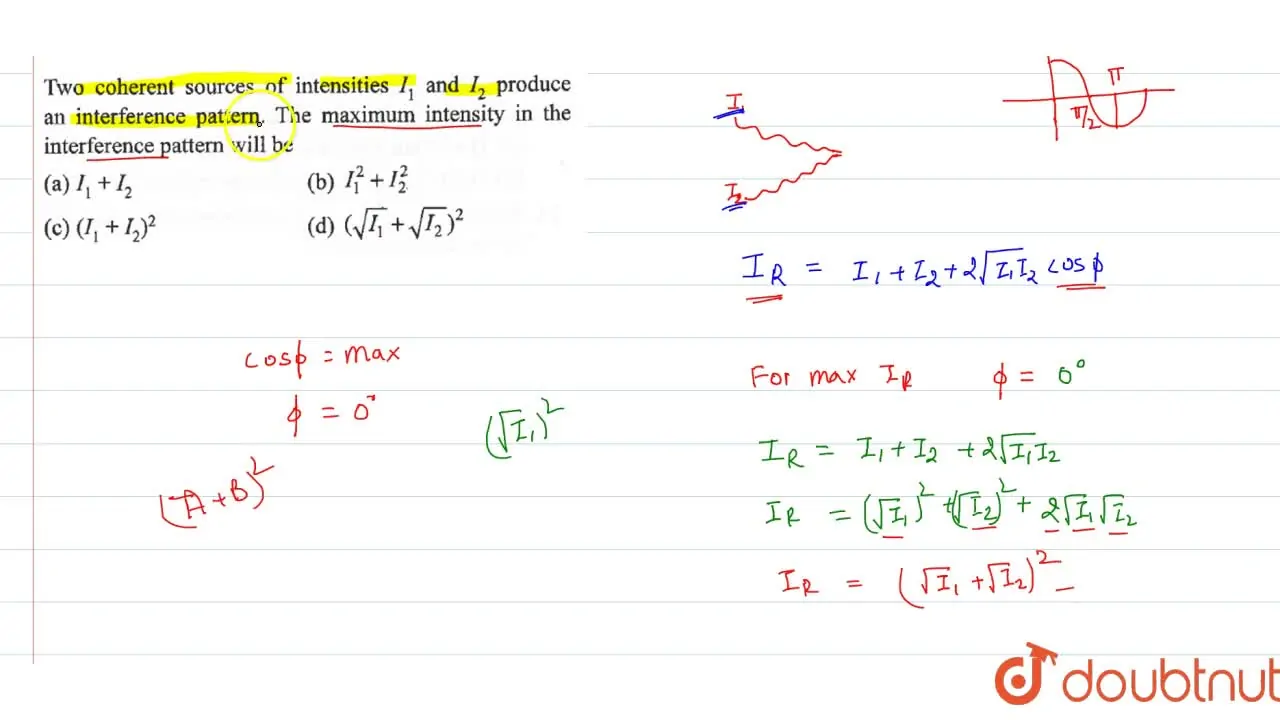 Two coherent sources of intensities I₁ and I₂ produce
an interference pattern. The maximum intensity in the
interference pattern will be
(a) I₁ + I₂
(b) I₁² + I₂²
(c) (I₁ + I₂)²
(d) (√I₁ + √I₂)²
cosϕ = max
ϕ = 0°
(√I₁)²
(A+B)²
I₁
I₂
π/2
π
I_R = I₁ + I₂ + 2√I₁I₂ cosϕ
For max I_R ϕ = 0°
I_R = I₁ + I₂ + 2√I₁I₂
I_R = (√I₁)² + (√I₂)² + 2√I₁√I₂
I_R = (√I₁ + √I₂)²
doubtnut